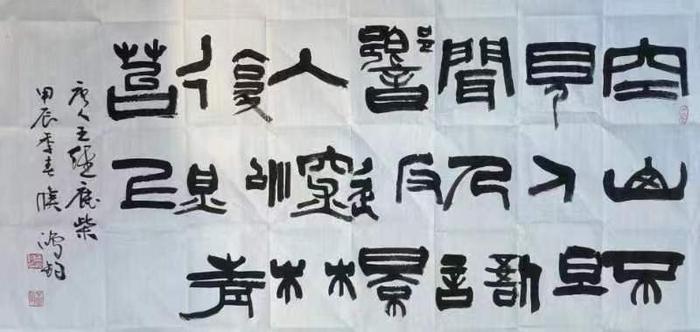 空山不
見人但
聞人語
響返景
入深林
復照青
苔上
唐人王維鹿柴
甲辰季春